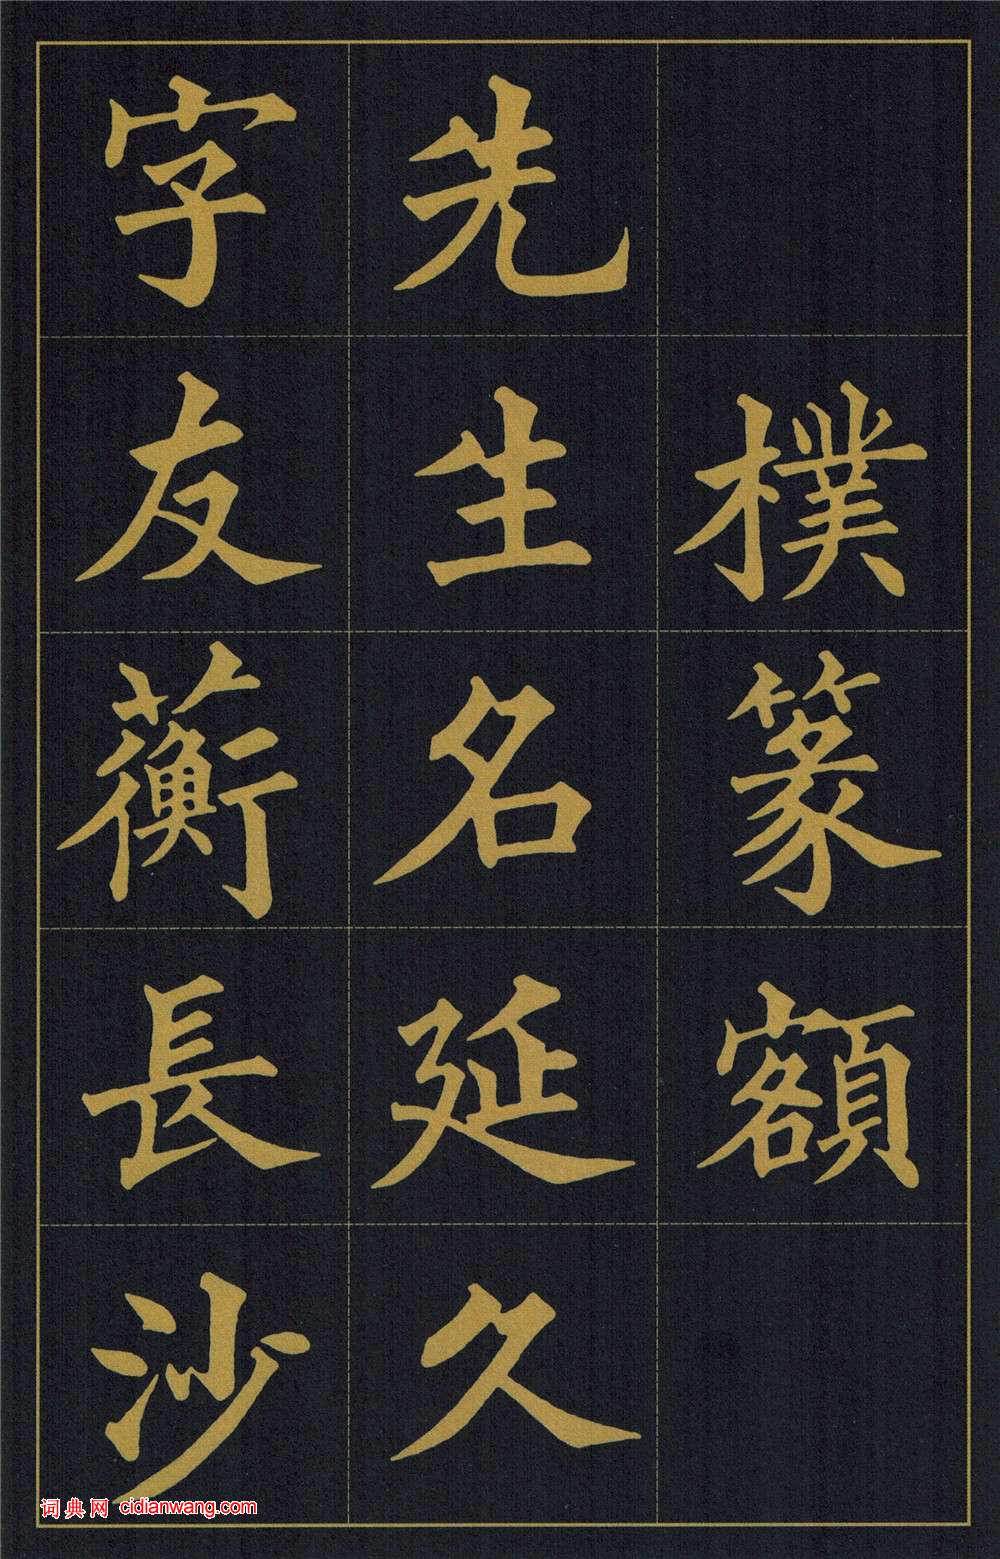 樸篆額
先生名延久
字友蘅長沙
词典网 cidianwang.com